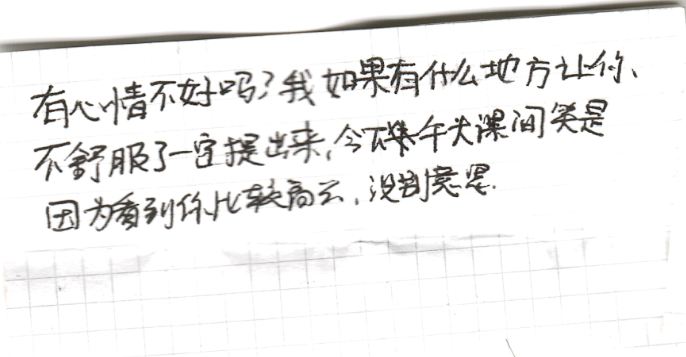 有心情不好吗?我如果有什么地方让你、
不舒服了一定提出来,今天集午大课间笑是
因为看到你比较高兴,没别意思.